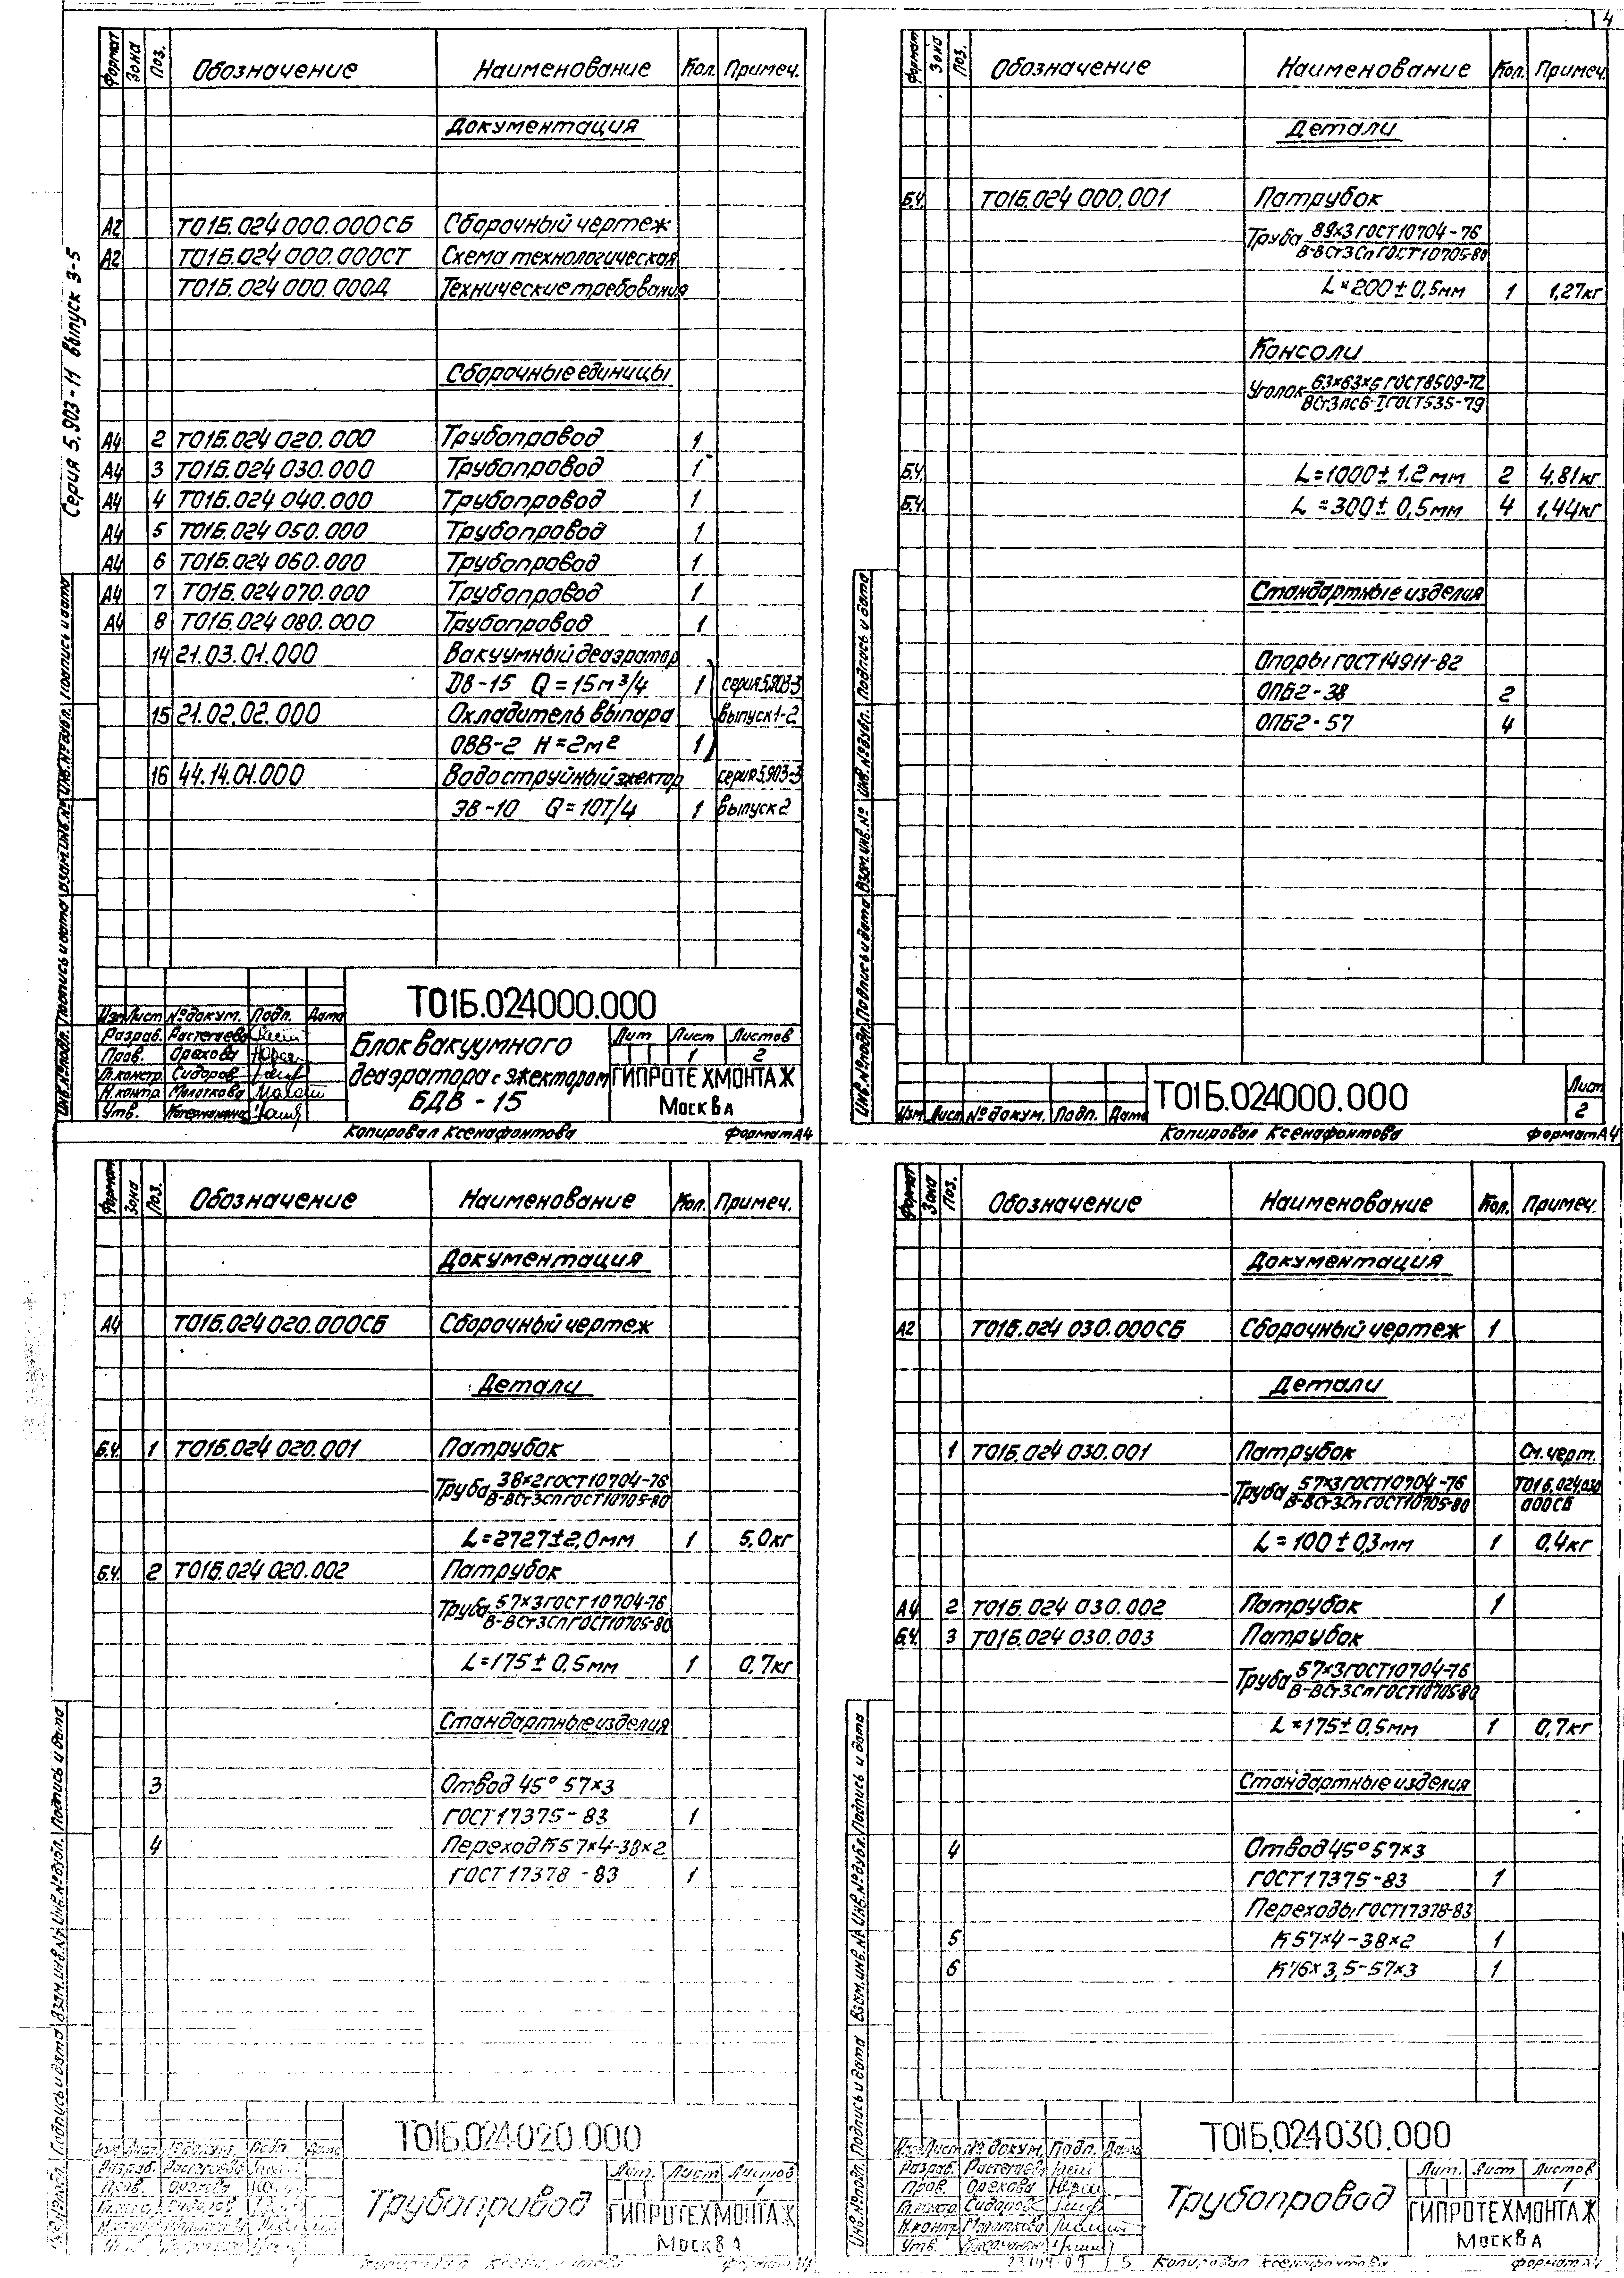 4
Серия 5.903-11 выпуск 3-5
Формат Зона Поз. Обозначение Наименование Кол. Примеч.
Документация
А2 Т01Б.024 000.000СБ Сборочный чертеж
А2 Т01Б.024 000.000СТ Схема технологическая
Т01Б.024 000.000Д Технические требования
Сборочные единицы
А4 2 Т01Б.024 020.000 Трубопровод 1
А4 3 Т01Б.024 030.000 Трубопровод 1
А4 4 Т01Б.024 040.000 Трубопровод 1
А4 5 Т01Б.024 050.000 Трубопровод 1
А4 6 Т01Б.024 060.000 Трубопровод 1
А4 7 Т01Б.024 070.000 Трубопровод 1
А4 8 Т01Б.024 080.000 Трубопровод 1
14 21.03.01.000 Вакуумный деаэратор
ДВ-15 Q=15м³/ч 1 серия 5.903-3
15 21.02.02.000 Охладитель выпара выпуск 1-2
ОВВ-2 Н=2м² 1
16 44.14.01.000 Водоструйный эжектор серия 5.903-3
ЭВ-10 Q=10т/ч 1 выпуск 2
Инв.№подл. Подпись и дата Взам.инв.№ Инв.№дубл. Подпись и дата
Т01Б.024000.000
Изм Лист №докум. Подп. Дата
Разраб. Растегаева
Пров. Орехова
Гл.констр. Сидоров
Н.контр. Молоткова
Утв.
Блок вакуумного
деаэратора с эжектором
БДВ-15
Лит Лист Листов
1 2
ГИПРОТЕХМОНТАЖ
Москва
Копировал Ксенафонтова Формат А4
Формат Зона Поз. Обозначение Наименование Кол. Примеч.
Детали
Б.Ч. Т01Б.024 000.001 Патрубок
Труба 89×3 ГОСТ 10704-76
В-ВСт3Сп ГОСТ 10705-80
L=200±0,5мм 1 1,27кг
Консоли
Уголок 63×63×5 ГОСТ 8509-72
ВСт3пс6-I ГОСТ 535-79
Б.Ч. L=1000±1.2мм 2 4.81кг
Б.Ч. L=300±0,5мм 4 1,44кг
Стандартные изделия
Опоры ГОСТ 14911-82
ОПБ2-38 2
ОПБ2-57 4
Инв.№подл. Подпись и дата Взам.инв.№ Инв.№дубл. Подпись и дата
Изм Лист №докум. Подп. Дата
Т01Б.024000.000
Лист
2
Копировал Ксенафонтова Формат А4
Формат Зона Поз. Обозначение Наименование Кол. Примеч.
Документация
А4 Т01Б.024 020.000СБ Сборочный чертеж
Детали
Б.Ч. 1 Т01Б.024 020.001 Патрубок
Труба 38×2 ГОСТ 10704-76
В-ВСт3Сп ГОСТ 10705-80
L=2727±2,0мм 1 5,0кг
Б.Ч. 2 Т01Б.024 020.002 Патрубок
Труба 57×3 ГОСТ 10704-76
В-ВСт3Сп ГОСТ 10705-80
L=175±0,5мм 1 0,7кг
Стандартные изделия
3 Отвод 45° 57×3
ГОСТ 17375-83 1
4 Переход К57×4-38×2
ГОСТ 17378-83 1
Подпись и дата Взам.инв.№ Инв.№дубл. Подпись и дата
Т01Б.024020.000
Разраб.
Пров. Орехова
Сидоров
Трубопровод
Лит. Лист Листов
1
ГИПРОТЕХМОНТАЖ
Москва
Формат Зона Поз. Обозначение Наименование Кол. Примеч.
Документация
А2 Т01Б.024 030.000СБ Сборочный чертеж 1
Детали
1 Т01Б.024 030.001 Патрубок См.черт.
Труба 57×3 ГОСТ 10704-76 Т01Б.024.030
В-ВСт3Сп ГОСТ 10705-80 000СБ
L=100±0,3мм 1 0,4кг
А4 2 Т01Б.024 030.002 Патрубок 1
Б.Ч. 3 Т01Б.024 030.003 Патрубок
Труба 57×3 ГОСТ 10704-76
В-ВСт3Сп ГОСТ 10705-80
L=175±0,5мм 1 0,7кг
Стандартные изделия
4 Отвод 45° 57×3
ГОСТ 17375-83 1
Переходы ГОСТ 17378-83
5 К57×4-38×2 1
6 К76×3,5-57×3 1
Инв.№подл. Подпись и дата Взам.инв.№ Инв.№дубл. Подпись и дата
Т01Б.024030.000
Изм Лист № докум. Подп. Дата
Разраб. Растегаева
Пров. Орехова
Гл.констр. Сидоров
Н.контр. Молоткова
Утв.
Трубопровод
Лит. Лист Листов
1
ГИПРОТЕХМОНТАЖ
Москва
5 Копировал Ксенафонтова Формат А4